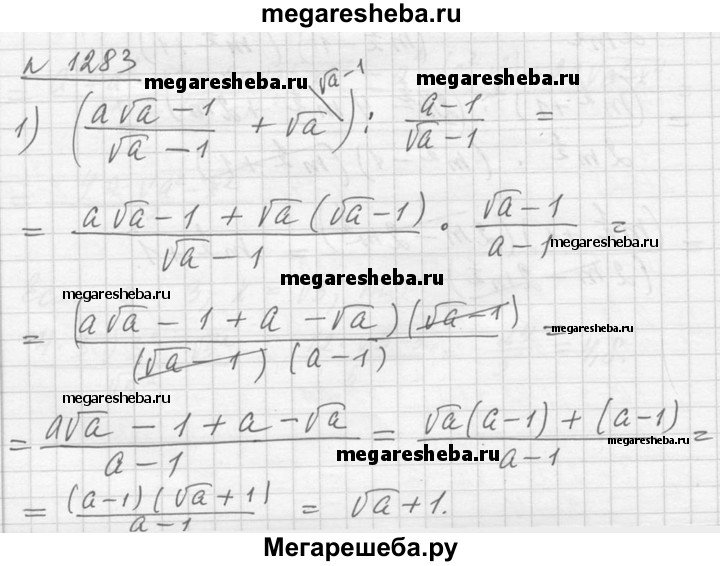 megaresheba.ru
N 1283
megaresheba.ru √a-1 megaresheba.ru
1) ( (a√a - 1)/(√a - 1) + √a ) : (a-1)/(√a-1) =
= (a√a-1 + √a(√a-1))/(√a-1) · (√a-1)/(a-1) =
megaresheba.ru
megaresheba.ru
= ((a√a - 1 + a - √a)(√a-1))/((√a-1)(a-1)) =
megaresheba.ru
megaresheba.ru
= (a√a - 1 + a - √a)/(a-1) = (√a(a-1) + (a-1))/(a-1) =
megaresheba.ru
megaresheba.ru
= ((a-1)(√a+1))/(a-1) = √a+1.
Мегарешеба.ру